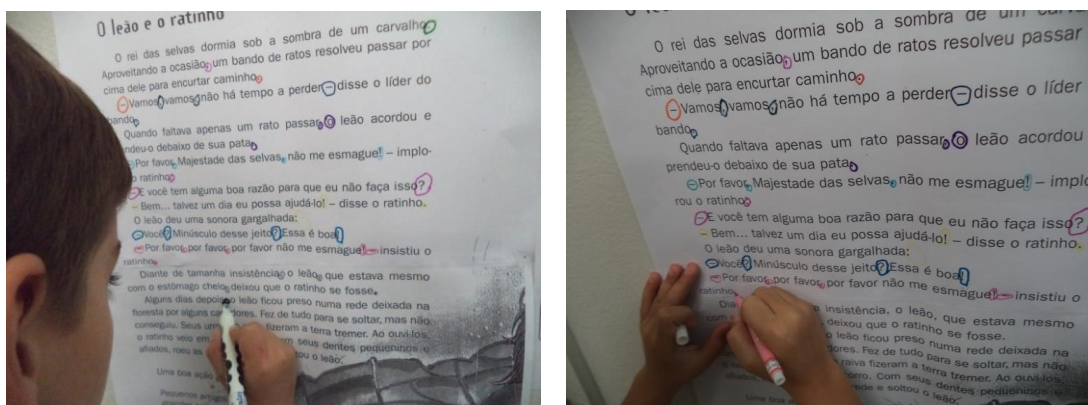 O leão e o ratinho
O rei das selvas dormia sob a sombra de um carvalho
Aproveitando a ocasião, um bando de ratos resolveu passar por
cima dele para encurtar caminho.
– Vamos, vamos, não há tempo a perder – disse o líder do
bando.
Quando faltava apenas um rato passar, o leão acordou e
prendeu-o debaixo de sua pata.
– Por favor, Majestade das selvas, não me esmague! – implo-
o ratinho.
– E você tem alguma boa razão para que eu não faça isso?
– Bem... talvez um dia eu possa ajudá-lo! – disse o ratinho.
O leão deu uma sonora gargalhada:
– Você? Minúsculo desse jeito? Essa é boa!
– Por favor, por favor, por favor não me esmague! – insistiu o
ratinho.
Diante de tamanha insistência, o leão, que estava mesmo
com o estômago cheio, deixou que o ratinho se fosse.
Alguns dias depois, o leão ficou preso numa rede deixada na
floresta por alguns Fez de tudo para se soltar, mas não
conseguiu. Seus fizeram a terra tremer. Ao ouvi-los,
o ratinho veio em seus dentes pequeninos e
afiados, roeu as tou o leão.
Uma boa ação
Pequenos amigos
O rei das selvas dormia sob a sombra de um
Aproveitando a ocasião, um bando de ratos resolveu passar
cima dele para encurtar caminho.
– Vamos, vamos, não há tempo a perder – disse o líder
bando.
Quando faltava apenas um rato passar, o leão acordou
prendeu-o debaixo de sua pata.
– Por favor, Majestade das selvas, não me esmague! – implo
rou o ratinho.
– E você tem alguma boa razão para que eu não faça isso?
– Bem... talvez um dia eu possa ajudá-lo! – disse o ratinho.
O leão deu uma sonora gargalhada:
– Você? Minúsculo desse jeito? Essa é boa!
– Por favor, por favor, por favor não me esmague! – insistiu o
ratinho.
Dia insistência, o leão, que estava mesmo
com deixou que o ratinho se fosse.
o leão ficou preso numa rede deixada na
dores. Fez de tudo para se soltar, mas não
raiva fizeram a terra tremer. Ao ouvi-los,
Com seus dentes pequeninos e
rede e soltou o leão.
Uma boa